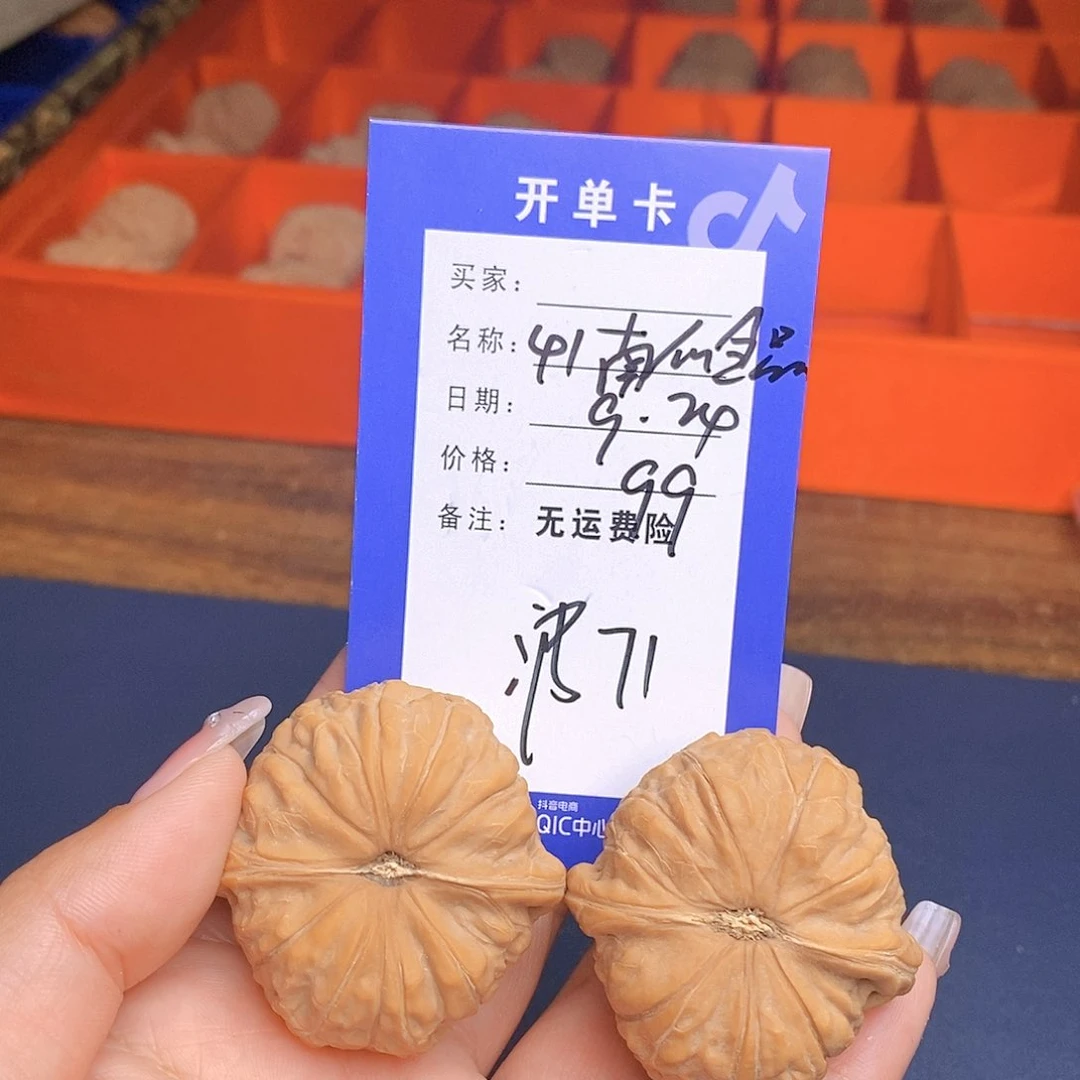 开单卡
买家：
名称：41南仙全品
日期：9.24
价格：99
备注：无运费险
波71
抖音电商
QIC中心